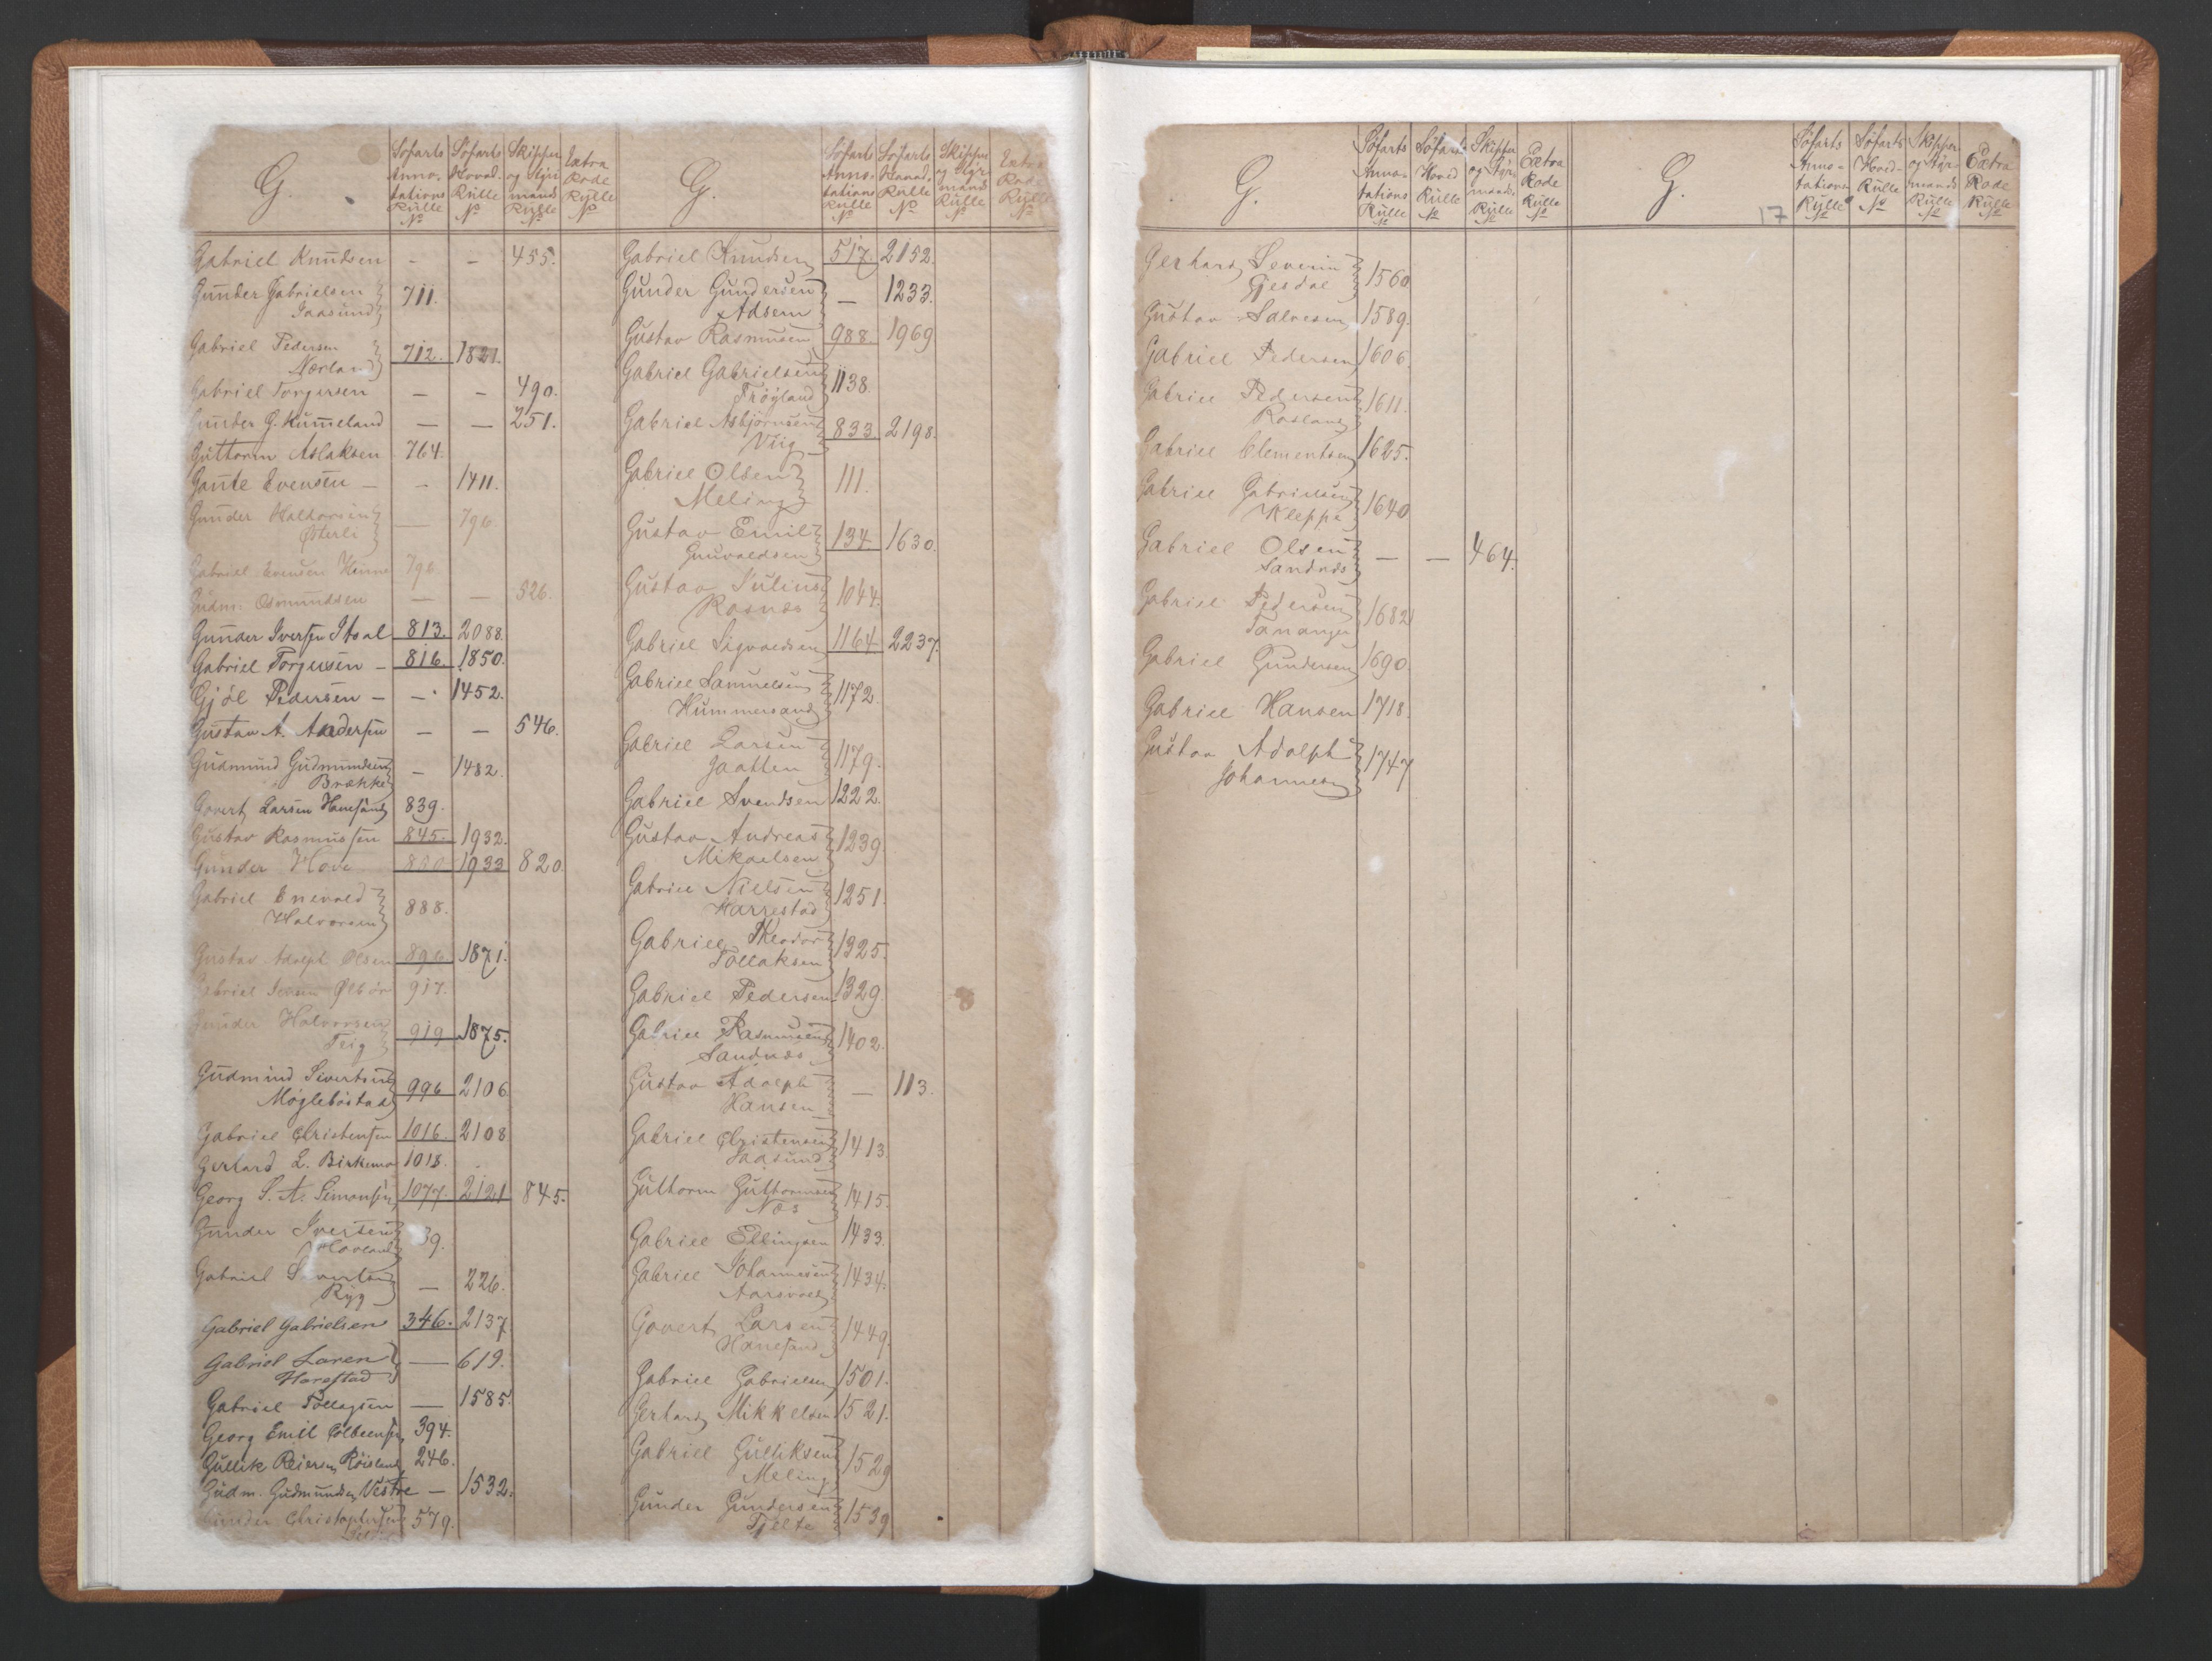 G.
Søfarts Anno- tations Rulle No
Søfarts Hoved- Rulle No
Skipper og Styr mands Rulle No
Extra Rode Rulle No
Gabriel Knudsen - - 455.
Gunder Gabrielsen
Jaasund 711.
Gabriel Pedersen
Nærland 712. 1821.
Gabriel Torgersen - - 490.
Gunder G. Hummeland - - 251.
Guttorm Aslaksen 764.
Gaute Evensen - - 1411.
Gunder Halvorsen
Østerli - 796
Gabriel Evensen Hinne 796
Gudm: Osmundsen - - 526.
Gunder Iversen 813. 2088.
Gabriel Torgersen - 816. 1850.
Gjøl Pedersen - - 1452.
Gustav A. Andersen - - 546.
Gudmund Gudmundsen
Brække - 1482.
Govert Larsen Hanesand 839.
Gustav Rasmussen 845. 1932.
Gunder Hove 1933 820.
Gabriel Enevold
Halvorsen 888.
Gustav Adolph Olsen 896 1871.
Gabriel 917.
Gunder Halvorsen
Teig 919 1875.
Gudmund Sivertsen
Møglebostad 996 2106
Gabriel Christensen 1016. 2108
Gerhard L. Birkemo 1018.
Georg S. A. Simonsen 1077. 2121 845.
Gunder Iversen
Hovland 39.
Gabriel Sivertsen
Ryg - 226.
Gabriel Gabrielsen 346. 2137
Gabriel Loren
Harestad - 619.
Gabriel Tollagsen - 1585.
Georg Emil 394.
Gullik Reiersen Røisland 246.
Gudm. Gudmundsen Vestre - 1532.
Gunder Christophersen 579.
G.
Søfarts Anno- tations Rulle No
Søfarts Hoved- Rulle No
Skipper og Styr mands Rulle No
Extra Rode Rulle No
Gabriel Knudsen 517. 2152.
Gunder Gundersen
Adsem - 1233.
Gustav Rasmusen 988. 1969
Gabriel Gabrielsen
Frøyland 1138.
Gabriel Asbjørnsen
Viig 833 2198.
Gabriel Olsen
Meling 111.
Gustav Emil
Gunvaldsen 134 1630.
Gustav Julius
Rasnæs 1044.
Gabriel Sigvaldsen 1164 2237.
Gabriel Samuelsen
Hummersand 1172.
Gabriel Larsen
Jaatten 1179.
Gabriel Svendsen 1222.
Gustav Andreas
Mikaelsen 1239.
Gabriel Nielsen
Harrestad 1251.
Gabriel Theodor
Tollaksen 1325.
Gabriel Pedersen 1329.
Gabriel Rasmussen
Sandnæs 1402.
Gustav Adolph
Hansen - 113.
Gabriel Christensen
Jaasund 1413
Guttorm Guttormsen
Næs 1415.
Gabriel Ellingsen 1433.
Gabriel Johannesen
Aarsvold 1434.
Govert Larsen
Hanesand 1449.
Gabriel Gabrielsen 1501.
Gerhard Mikkelsen 1521.
Gabriel Gulliksen
Meling 1529
Gunder Gundersen
Tjelte 1539
G.
Søfarts Anno- tations Rulle No
Søfarts Hoved Rulle No
Skipper og Styr- mands Rulle No
Extra Rode Rulle No
Gerhard Severin
Gjesdal 1560
Gustav Salvesen 1589.
Gabriel Pedersen 1606.
Gabriel Pedersen
Rosland 1611.
Gabriel Clementsen 1625.
Gabriel Gabrielsen
Kleppa 1640
Gabriel Olsen
Sandnæs - - 464.
Gabriel Pedersen
Tananger 1682
Gabriel Gundersen 1690.
Gabriel Hansen 1718.
Gustav Adolph
Johannesen 1747
G.
17
Søfarts Anno- tations Rulle No
Søfarts Hoved- Rulle No
Skipper og Styr- mands Rulle No
Extra Rode Rulle No